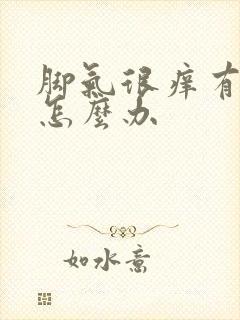 脚氣很痒有
怎麼办
如水意